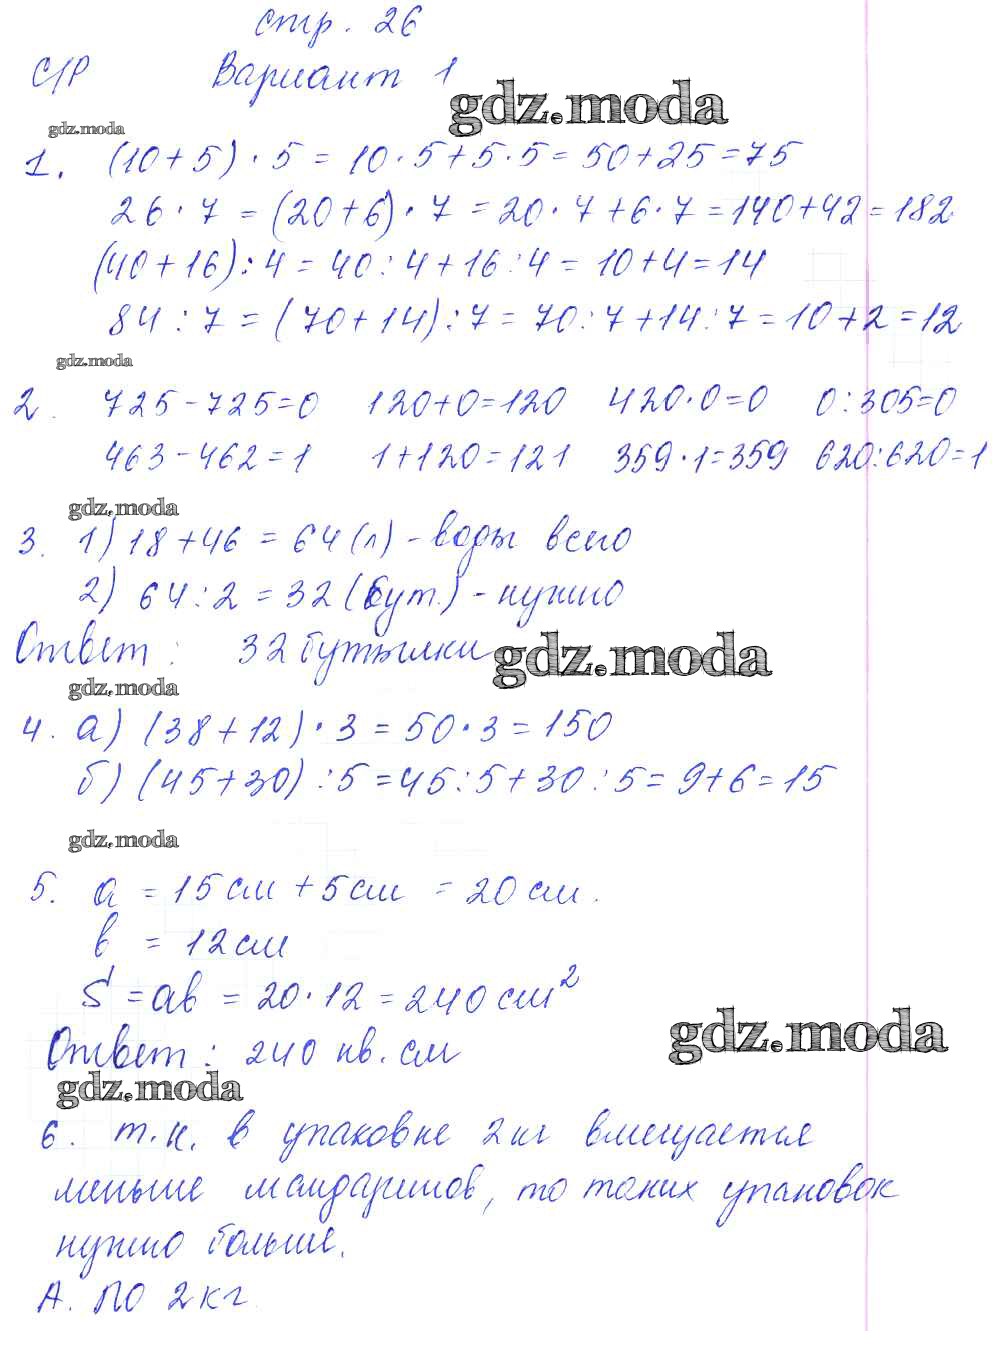 стр. 26
С/Р Вариант 1
gdz.moda
gdz.moda
1. (10+5)·5=10·5+5·5=50+25=75
26·7=(20+6)·7=20·7+6·7=140+42=182
(40+16):4=40:4+16:4=10+4=14
84:7=(70+14):7=70:7+14:7=10+2=12
gdz.moda
2. 725-725=0 120+0=120 420·0=0 0:305=0
463-462=1 1+120=121 359·1=359 620:620=1
gdz.moda
3. 1) 18+46=64(л)-воды всего
2) 64:2=32(бут.)-нужно
Ответ: 32 бутылки
gdz.moda
gdz.moda
4. а) (38+12)·3=50·3=150
б) (45+30):5=45:5+30:5=9+6=15
gdz.moda
5. a=15см+5см=20см.
в=12см
S=ав=20·12=240см²
gdz.moda
Ответ: 240 кв.см
gdz.moda
6. т.к. в упаковке 2кг вмещается
меньше мандаринов, то таких упаковок
нужно больше.
А. по 2кг.